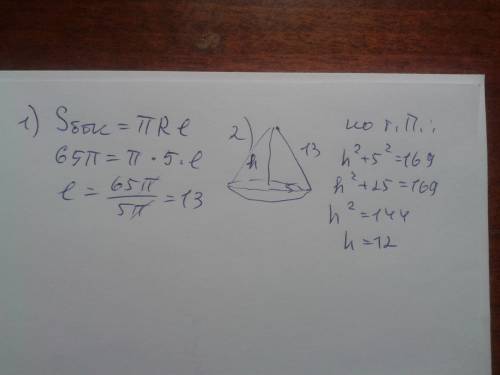 1) Sбок = πRl
65π = π · 5 · l
l = 65π / 5π = 13
2)
h
13
5
по т.П.:
h² + 5² = 169
h² + 25 = 169
h² = 144
h = 12